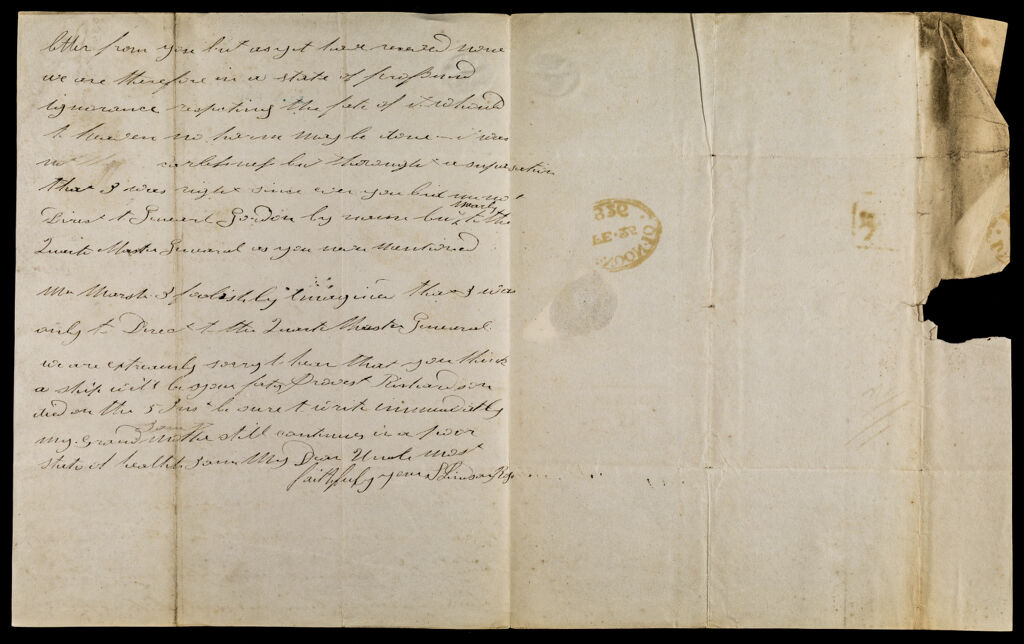 letter from you but as yet have received none
we are therefore in a state of profound
ignorance respecting the fate of it which
to heaven no harm may be done - it was
not carelessness but thorough a supposition
that I was right since ever you bid me not
Direct to General Gordon by name but
nearly
to the
Quarter Master General as you never mentioned
Mr Marsh I foolishly imagined that I was
only to Direct to the Quarter Master General.
we are extreamly sorry to hear that you think
a ship will be your fate Provost Richardson
died on the 5 Inst be sure to write immediatly
my Grand mother still continues in a poor
state of health I am My Dear Uncle most
faithfully yours
FE 25